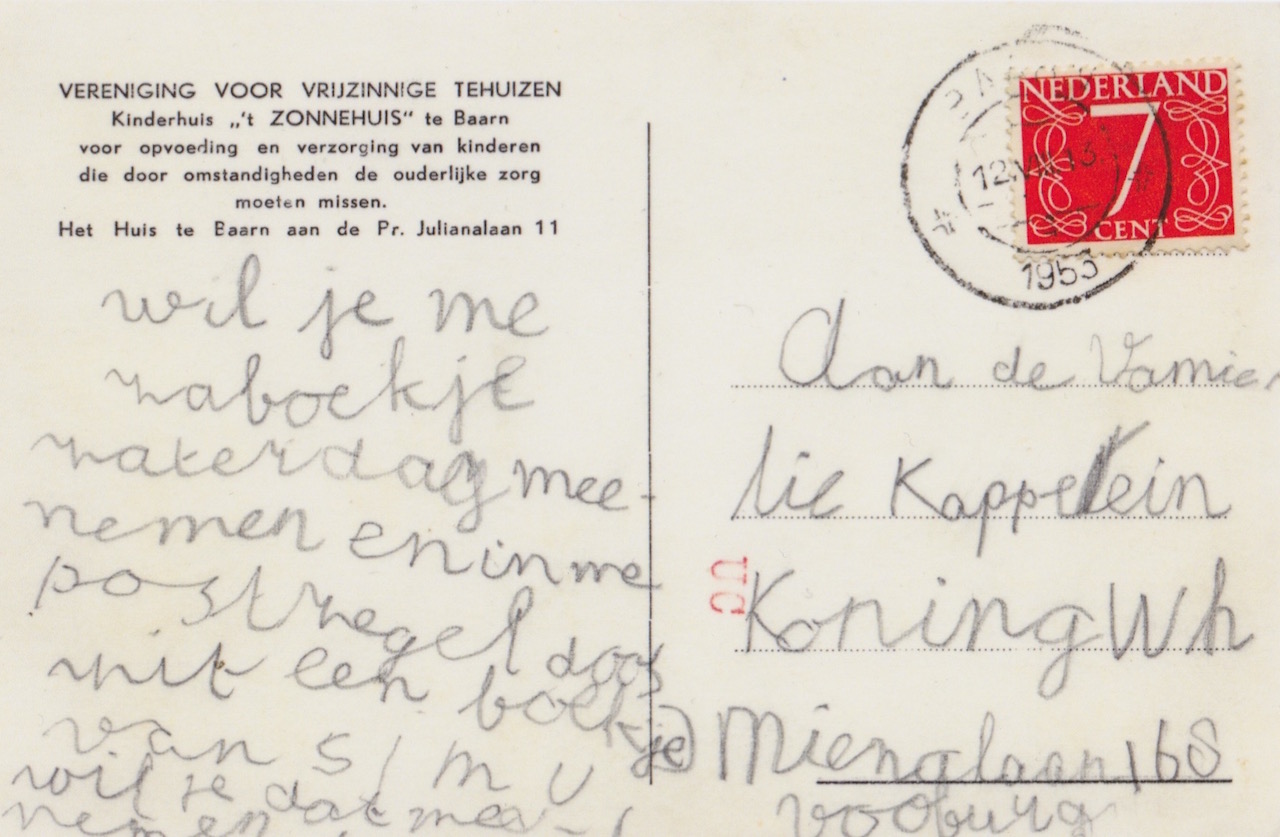 VERENIGING VOOR VRIJZINNIGE TEHUIZEN
Kinderhuis „'t ZONNEHUIS" te Baarn
voor opvoeding en verzorging van kinderen
die door omstandigheden de ouderlijke zorg
moeten missen.
Het Huis te Baarn aan de Pr. Julianalaan 11
wil je me
waboekje
waterdag mee-
nemen en in me
postzegel doos
wit een boekje
van S / M U
wil je dat mee-
nemen
NEDERLAND
7
CENT
12.VIII.13
1953
Aan de Vamie
lie Kappelein
Koning Wh
Mienglaan 168
vooburg